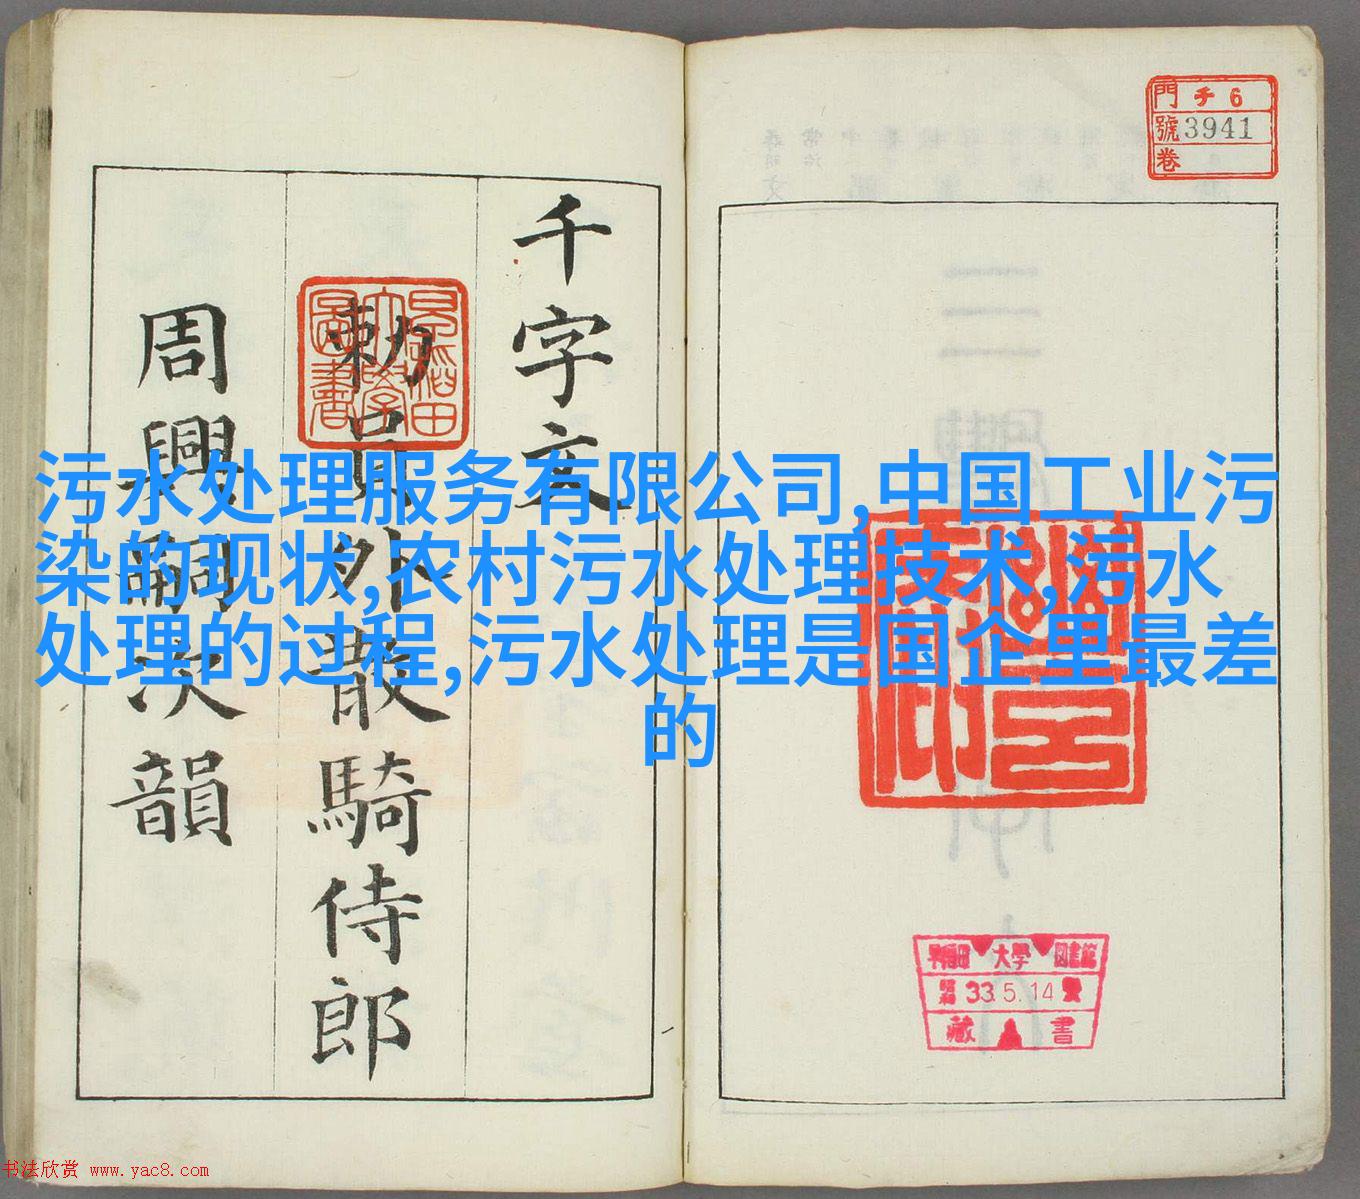 污水处理服务有限公司,中国工业污
染的现状,农村污水处理技术,污水
处理的过程,污水处理是国企里最差
的
門 チ 6
號 3941
卷
千字文
勅員外散騎侍郎
周興嗣次韻
早稻田大學圖書
早稻田 大學 図書館
昭和 33.5.14
藏書
书法欣赏 www.yac8.com